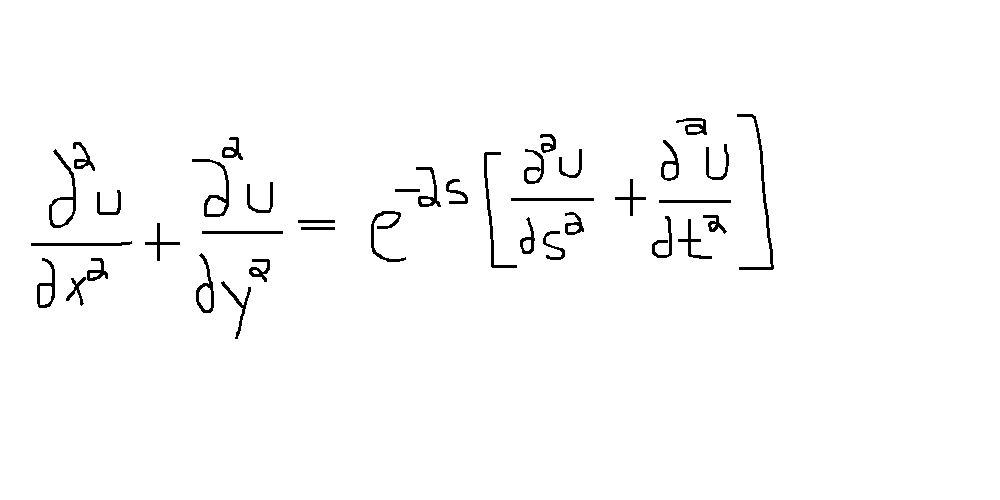 ∂²u/∂x² + ∂²u/∂y² = e^{-2s} [∂²u/∂s² + ∂²u/∂t²]